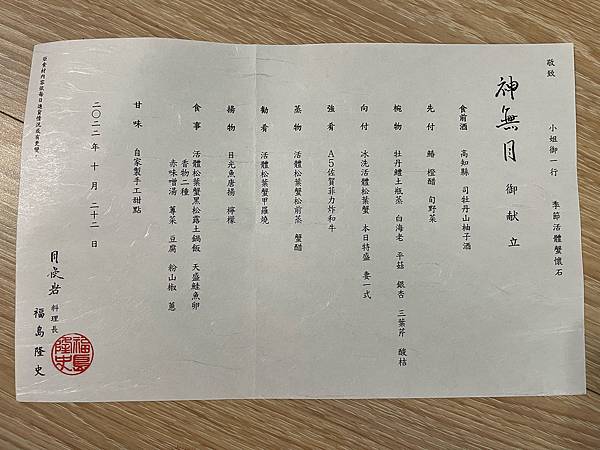 敬致
小姐御一行 季節活體蟹懷石
神無月 御献立
食前酒 高知縣 司牡丹山柚子酒
先付 鰆 橙醋 旬野菜
椀物 牡丹鱧土瓶蒸 白海老 平菇 銀杏 三葉芹 酸桔
向付 冰洗活體松葉蟹 本日特盛 妻一式
強肴 A5佐賀菲力炸和牛
蒸物 活體松葉蟹松前蒸 蟹醋
勧肴 活體松葉蟹甲羅燒
揚物 日光魚唐揚 檸檬
食事 活體松葉蟹黑松露土鍋飯 天盛鮭魚卵
香物二種
赤味噌湯 蓴菜 豆腐 粉山椒 蔥
甘味 自家製手工甜點
二〇二二年十月二十二日
料理長
福島隆史
福島
隆史
※食材內容依每日進貨情況或有更變。